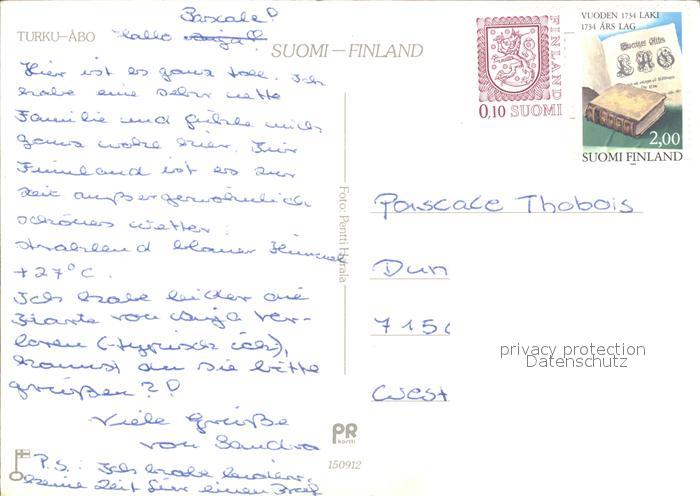 Pascale!
TURKU-ÅBO Hallo
SUOMI-FINLAND
Hier ist es ganz toll. Ich
habe eine sehr nette
Familie und fühle mich
ganz wohl hier. Für
Finnland ist es zur
Zeit außergewöhnlich
schönes Wetter:
strahlend blauer Himmel
+27°C.
Ich habe leider die
Karte von Anja ver-
loren (-typisch ich),
kannst du sie bitte
grüßen?!
Viele Grüße
von Sandra
P.S.: Ich habe leider
keine Zeit für einen Brief
Foto: Pentti Harala
PR
kortti
150912
FINLAND
0,10 SUOMI
VUODEN 1734 LAKI
1734 ÅRS LAG
2,00
SUOMI FINLAND
Pascale Thobois
Dun
715
West
privacy protection
Datenschutz